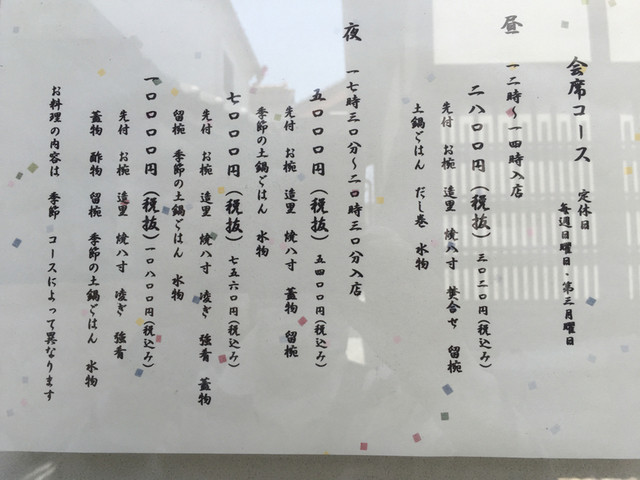 会席コース
定休日
毎週日曜日・第三月曜日
昼 一二時～一四時入店
二八〇〇円(税抜)三〇二〇円(税込み)
先付 お椀 造里 焼八寸 焚合せ 留椀
土鍋ごはん だし巻 水物
夜 一七時三〇分～二〇時三〇分入店
五〇〇〇円(税抜)五四〇〇円(税込み)
先付 お椀 造里 焼八寸 蓋物 留椀
季節の土鍋ごはん 水物
七〇〇〇円(税抜)七五六〇円(税込み)
先付 お椀 造里 焼八寸 凌ぎ 強肴 蓋物
留椀 季節の土鍋ごはん 水物
一〇〇〇〇円(税抜)一〇八〇〇円(税込み)
先付 お椀 造里 焼八寸 凌ぎ 強肴
蓋物 酢物 留椀 季節の土鍋ごはん 水物
お料理の内容は 季節 コースによって異なります